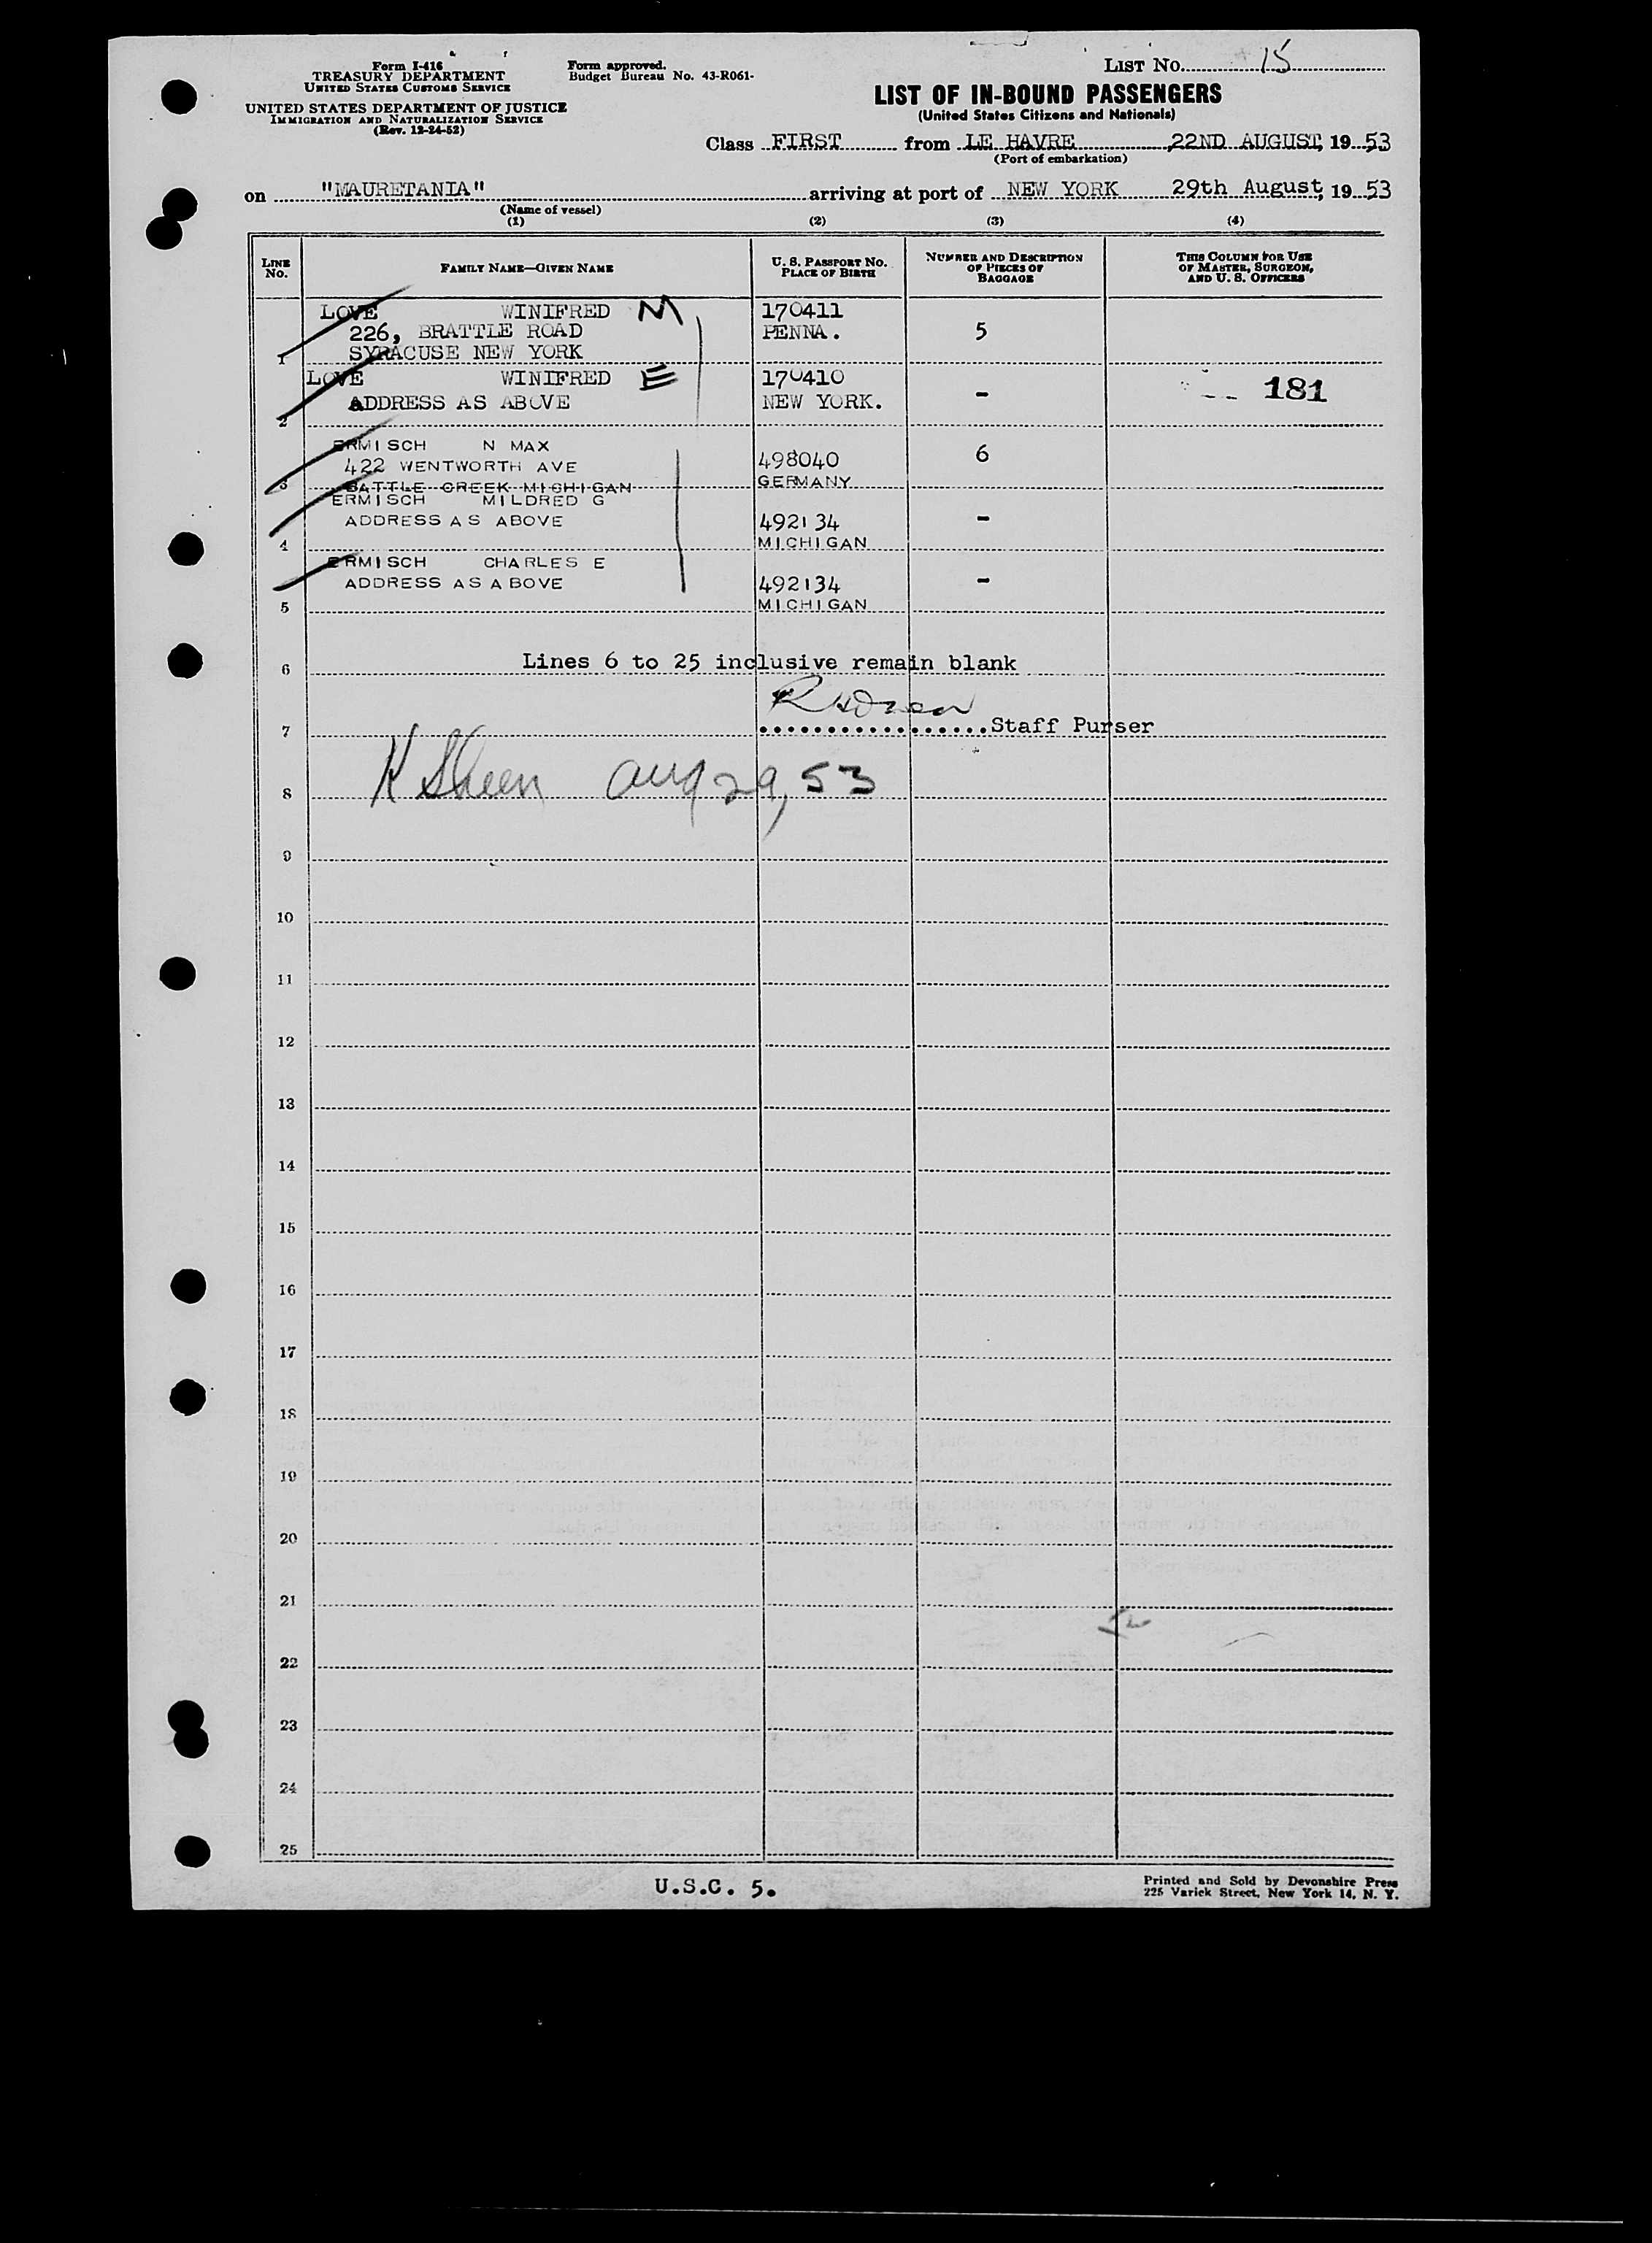 Form I-416
TREASURY DEPARTMENT
UNITED STATES CUSTOMS SERVICE
UNITED STATES DEPARTMENT OF JUSTICE
IMMIGRATION AND NATURALIZATION SERVICE
(Rev. 12-24-52)
Form approved.
Budget Bureau No. 43-R061-
LIST No. 15
LIST OF IN-BOUND PASSENGERS
(United States Citizens and Nationals)
Class FIRST from LE HAVRE 22ND AUGUST, 1953
(Port of embarkation)
on "MAURETANIA" arriving at port of NEW YORK 29th August, 1953
(Name of vessel)
(1) (2) (3) (4)
LINE No. FAMILY NAME—GIVEN NAME U. S. PASSPORT NO. PLACE OF BIRTH NUMBER AND DESCRIPTION OF PIECES OF BAGGAGE THIS COLUMN FOR USE OF MASTER, SURGEON, AND U. S. OFFICERS
LOVE WINIFRED M 170411
226, BRATTLE ROAD PENNA. 5
1 SYRACUSE NEW YORK
LOVE WINIFRED E 170410
ADDRESS AS ABOVE NEW YORK. - -- 181
2
ERMISCH N MAX 6
422 WENTWORTH AVE 498040
3 BATTLE CREEK MICHIGAN GERMANY
ERMISCH MILDRED G
ADDRESS AS ABOVE 492134 -
4 MICHIGAN
ERMISCH CHARLES E
ADDRESS AS ABOVE 492134 -
5 MICHIGAN
6 Lines 6 to 25 inclusive remain blank
7 ................. Staff Purser
8 K Sheen Aug 29, 53
9
10
11
12
13
14
15
16
17
18
19
20
21
22
23
24
25
U.S.C. 5.
Printed and Sold by Devonshire Press
225 Varick Street, New York 14, N. Y.